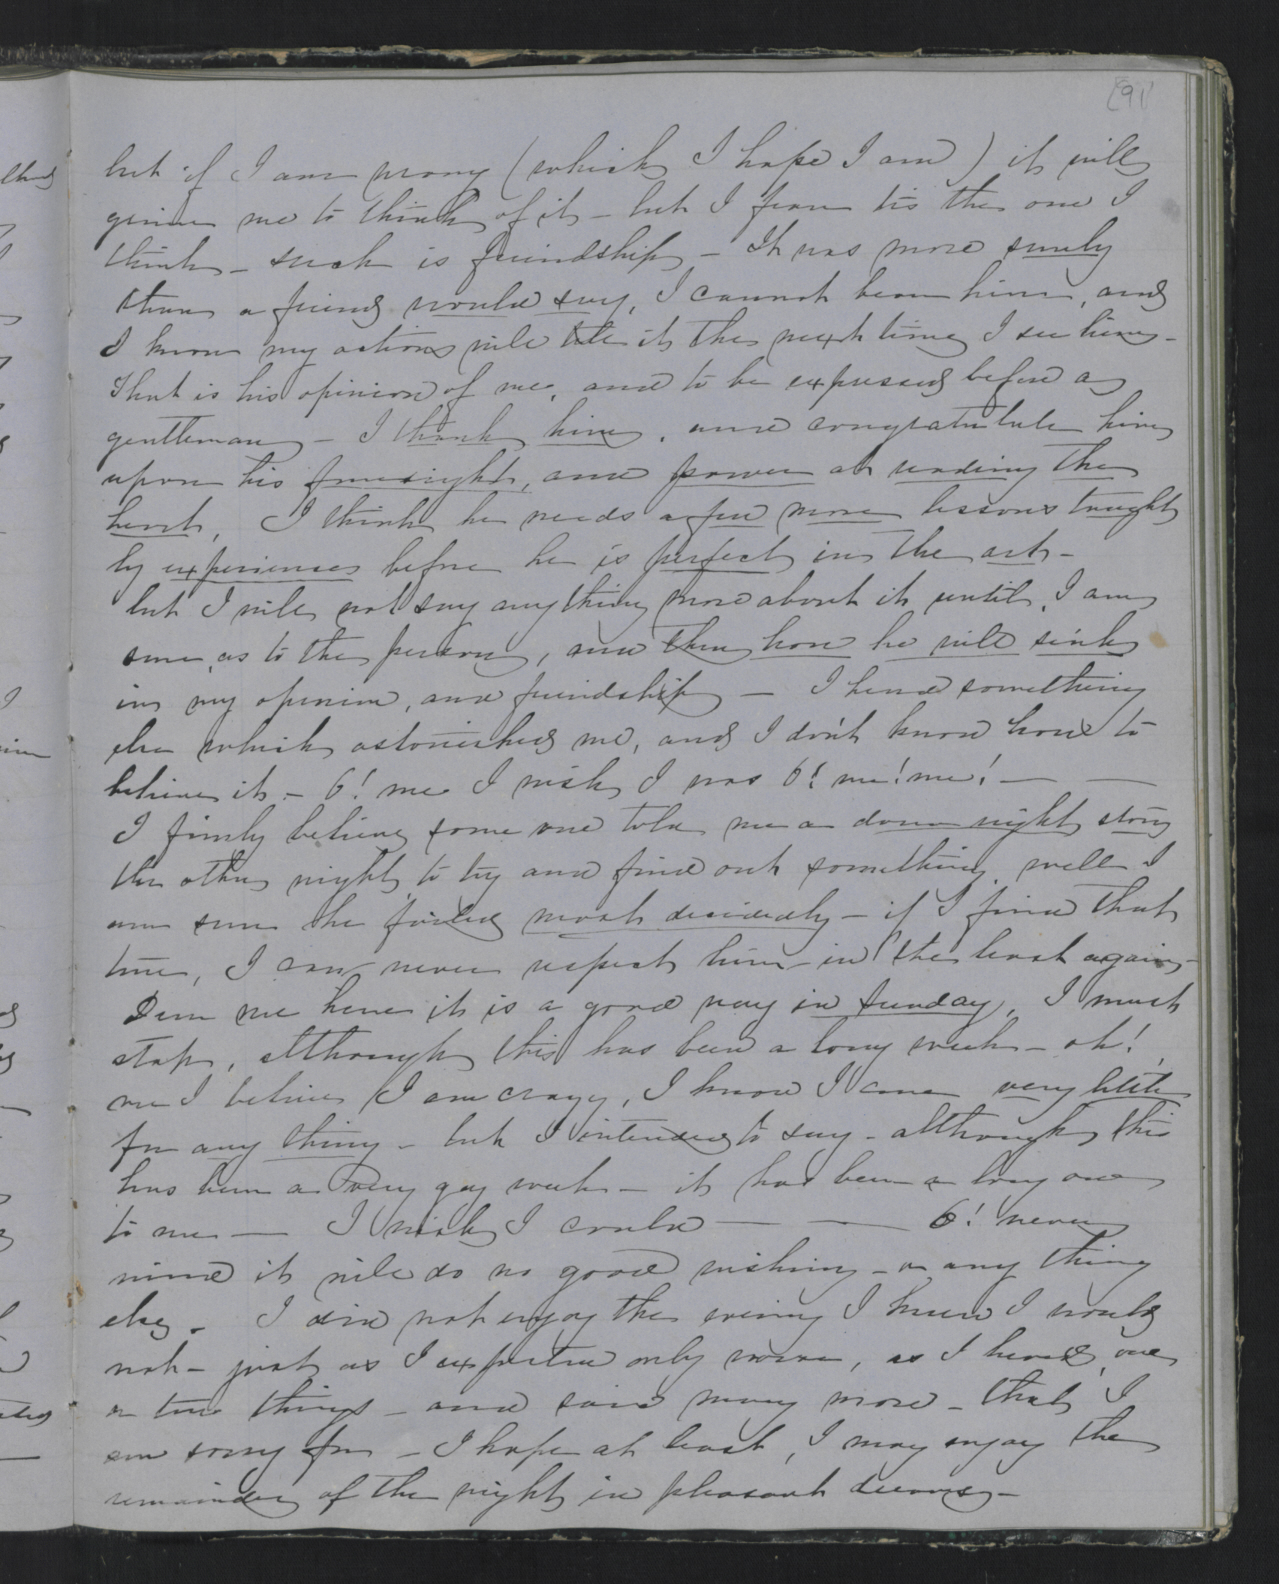 [91]
but if I am wrong (which I hope I am) it will
grieve me to think of it - but I fear tis the one I
think - such is friendship - It was more surely
than a friend would say, I cannot bear him, and
I know my actions will tell it the next time I see him -
That is his opinion of me, and to be expressed before a
gentleman - I thank him, and congratulate him
upon his foresight, and power at reading the
heart, I think he needs a few more lessons taught
by experience before he is perfect in the art -
but I will not say anything more about it until I am
sure as to the person, and then how he will sink
in my opinion, and friendship - I heard something
else which astonished me, and I don't know how to
believe it - O! me I wish I was O! me! me! — —
I firmly believe some one told me a down right story
the other night to try and find out something, well I
am sure he failed most decidedly - if I find that
true, I can never respect him in the least again -
Dear me here it is a good way in Sunday, I must
stop, although this has been a long week - oh!
me I believe I am crazy, I know I care very little
for any thing - but I intended to say - although this
has been a very gay week - it has been a long one
to me — I wish I could — — O! never
mind it will do no good wishing - or any thing
else. I did not enjoy the evening I knew I would
not - just as I expected only worse, as I heard one
or two things - and said many more - that I
am sorry for - I hope at least, I may enjoy the
remainder of the night in pleasant dreams -